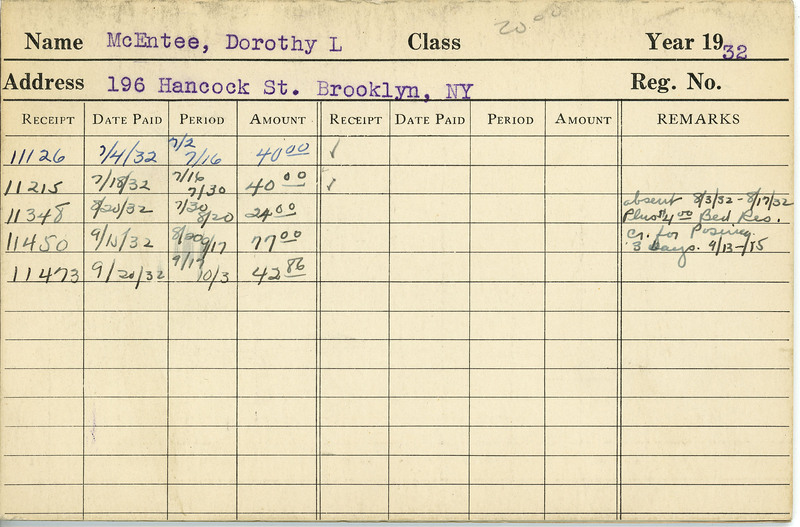 20.00
Name McEntee, Dorothy L Class Year 1932
Address 196 Hancock St. Brooklyn, NY Reg. No.
RECEIPT DATE PAID PERIOD AMOUNT RECEIPT DATE PAID PERIOD AMOUNT REMARKS
11126 7/4/32 7/2 7/16 40 00 ✓
11215 7/18/32 7/16 7/30 40 00 ✓
absent 8/3/32 - 8/17/32
11348 8/20/32 7/30 8/20 24 00 Plus $4 00 Bed Res.
11450 9/15/32 8/20 9/17 77 00 Cr. for Posing
3 days. 9/13-/15
11473 9/20/32 9/17 10/3 42 86